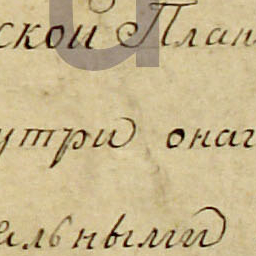 ской План
утри онаг
альными